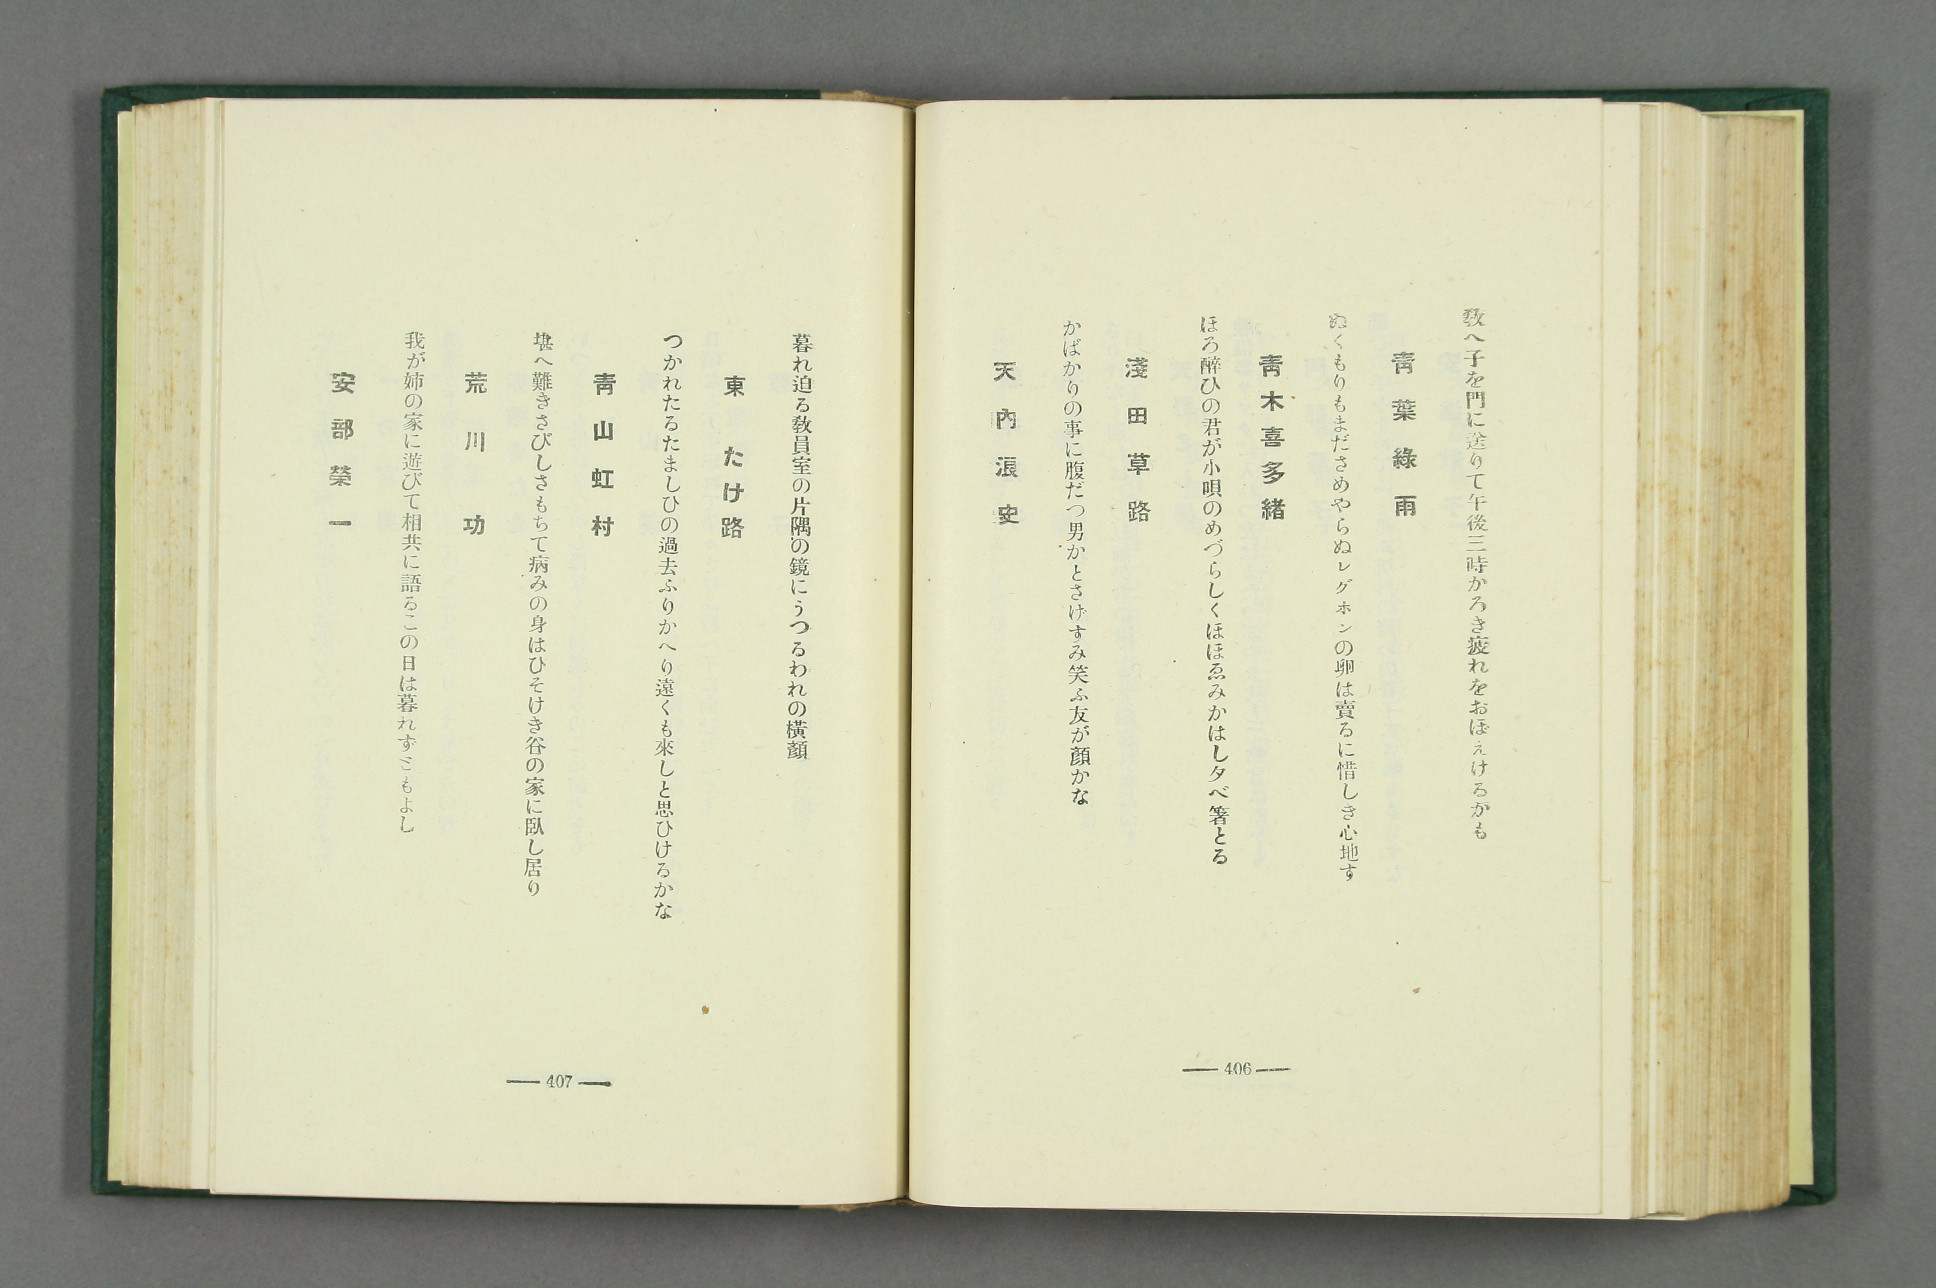 敎へ子を門に送りて午後三時かろき疲れをおぼえけるかも
靑葉綠雨
ぬくもりもまださめやらぬレグホンの卵は賣るに惜しき心地す
靑木喜多緖
ほろ醉ひの君が小唄のめづらしくほほゑみかはし夕べ箸とる
淺田草路
かばかりの事に腹だつ男かとさげすみ笑ふ友が顏かな
天內浪史
— 406 —
暮れ迫る敎員室の片隅の鏡にうつるわれの橫顏
東たけ路
つかれたるたましひの過去ふりかへり遠くも來しと思ひけるかな
靑山虹村
堪へ難きさびしさもちて病みの身はひそけき谷の家に臥し居り
荒川功
我が姉の家に遊びて相共に語るこの日は暮れずともよし
安部榮一
— 407 —